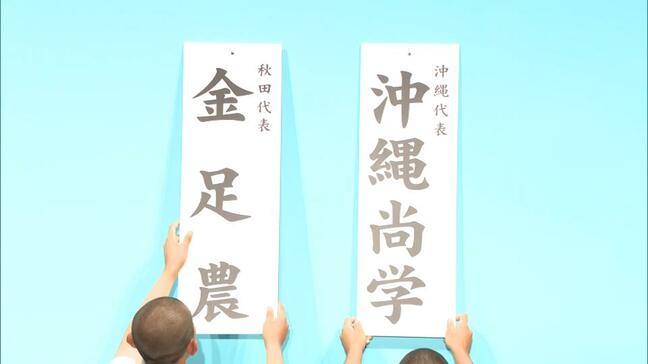 沖縄代表
沖縄尚学
秋田代表
金足農